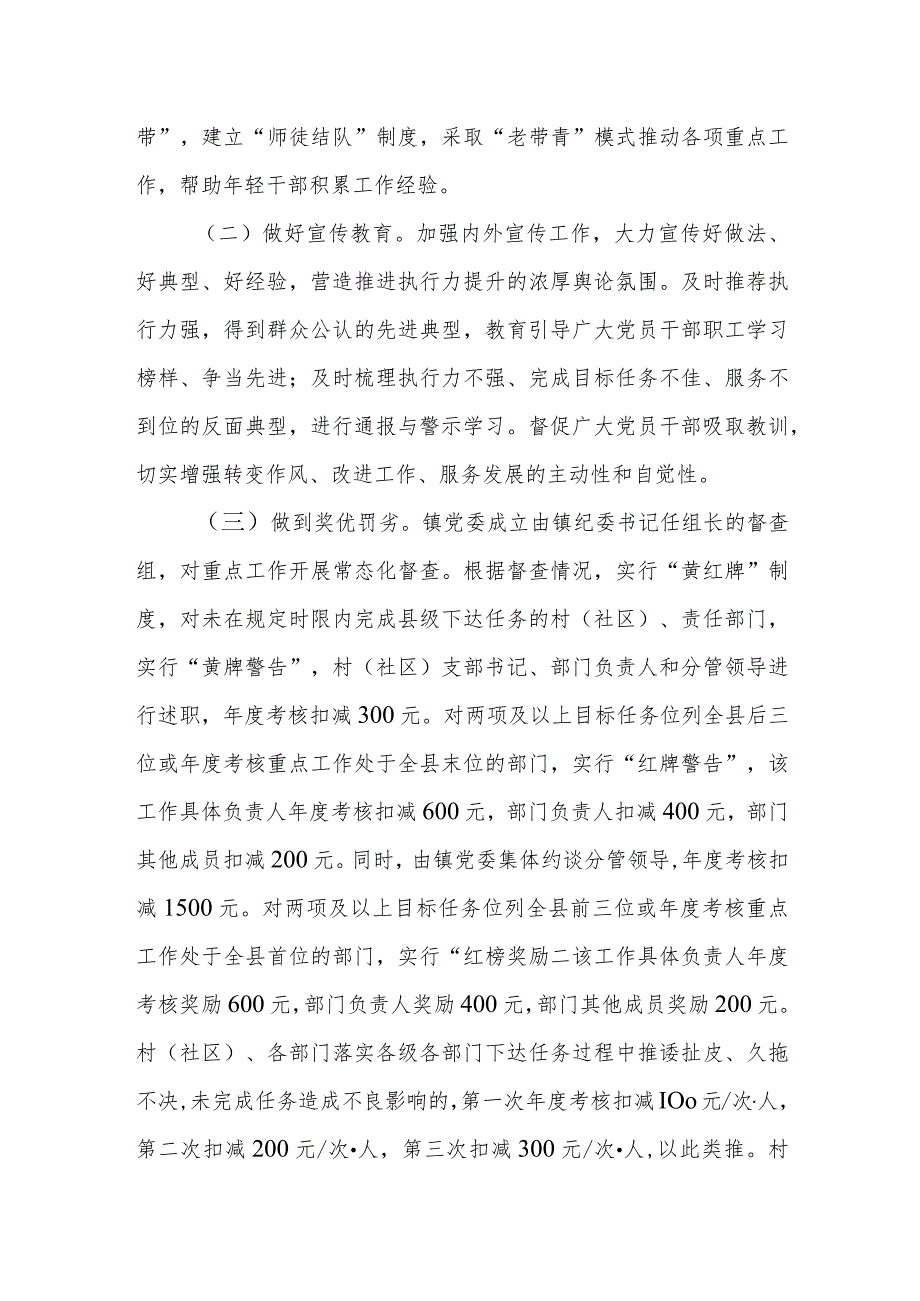 带”，建立“师徒结队”制度，采取“老带青”模式推动各项重点工
作，帮助年轻干部积累工作经验。
（二）做好宣传教育。加强内外宣传工作，大力宣传好做法、
好典型、好经验，营造推进执行力提升的浓厚舆论氛围。及时推荐执
行力强，得到群众公认的先进典型，教育引导广大党员干部职工学习
榜样、争当先进；及时梳理执行力不强、完成目标任务不佳、服务不
到位的反面典型，进行通报与警示学习。督促广大党员干部吸取教训，
切实增强转变作风、改进工作、服务发展的主动性和自觉性。
（三）做到奖优罚劣。镇党委成立由镇纪委书记任组长的督查
组，对重点工作开展常态化督查。根据督查情况，实行“黄红牌”制
度，对未在规定时限内完成县级下达任务的村（社区）、责任部门，
实行“黄牌警告”，村（社区）支部书记、部门负责人和分管领导进
行述职，年度考核扣减300元。对两项及以上目标任务位列全县后三
位或年度考核重点工作处于全县末位的部门，实行“红牌警告”，该
工作具体负责人年度考核扣减600元，部门负责人扣减400元，部门
其他成员扣减200元。同时，由镇党委集体约谈分管领导,年度考核扣
减1500元。对两项及以上目标任务位列全县前三位或年度考核重点
工作处于全县首位的部门，实行“红榜奖励二该工作具体负责人年度
考核奖励600元,部门负责人奖励400元,部门其他成员奖励200元。
村（社区）、各部门落实各级各部门下达任务过程中推诿扯皮、久拖
不决,未完成任务造成不良影响的,第一次年度考核扣减IOo元/次·人，
第二次扣减200元/次•人，第三次扣减300元/次•人,以此类推。村